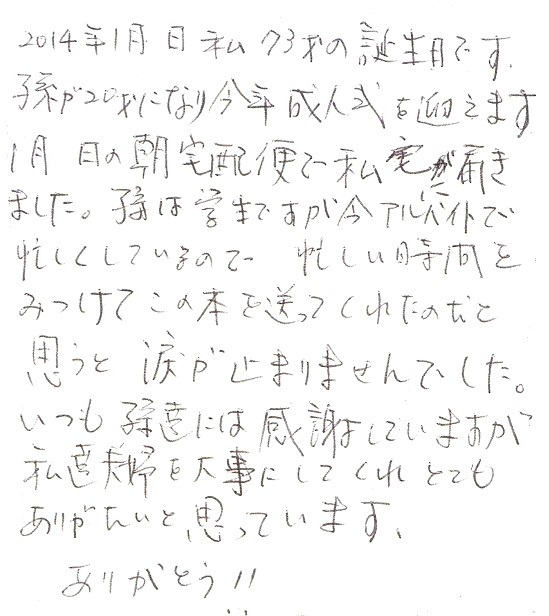 2014年1月 日 私 73才の誕生日です.
孫が20才になり今年成人式を迎えます
1月 日の朝宅配便で私宛に届き
ました。孫は学生ですが今アルバイトで
忙しくしているので 忙しい時間を
みつけてこの本を送ってくれたのだと
思うと涙が止まりませんでした。
いつも孫達には感謝はしていますが
私達夫婦を大事にしてくれとても
ありがたいと思っています.
ありがとう!!